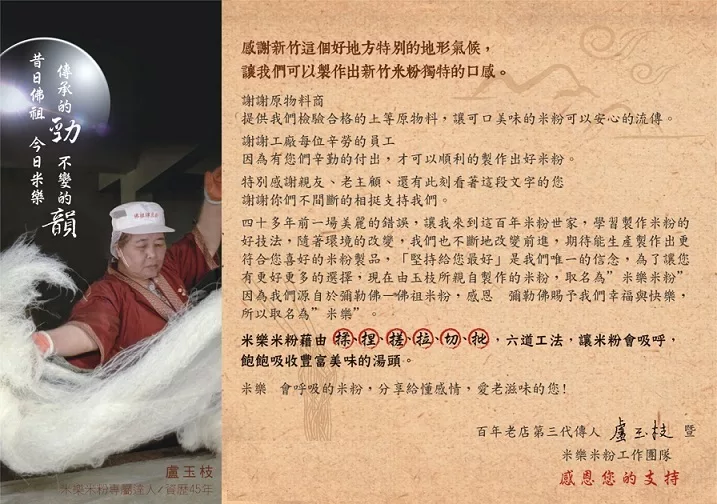 傳承的勁 不變的韻
昔日佛祖 今日米樂
盧玉枝
米樂米粉專屬達人/資歷45年
感謝新竹這個好地方特別的地形氣候，
讓我們可以製作出新竹米粉獨特的口感。
謝謝原物料商
提供我們檢驗合格的上等原物料，讓可口美味的米粉可以安心的流傳。
謝謝工廠每位辛勞的員工
因為有您們辛勤的付出，才可以順利的製作出好米粉。
特別感謝親友、老主顧、還有此刻看著這段文字的您
謝謝你們不間斷的相挺支持我們。
四十多年前一場美麗的錯誤，讓我來到這百年米粉世家，學習製作米粉的
好技法，隨著環境的改變，我們也不斷地改變前進，期待能生產製作出更
符合您喜好的米粉製品，「堅持給您最好」是我們唯一的信念，為了讓您
有更好更多的選擇，現在由玉枝所親自製作的米粉，取名為”米樂米粉”
因為我們源自於彌勒佛—佛祖米粉，感恩 彌勒佛賜予我們幸福與快樂，
所以取名為”米樂”。
米樂米粉藉由 揉、捏、搓、拉、切、批，六道工法，讓米粉會呼吸，
飽飽吸收豐富美味的湯頭。
米樂 會呼吸的米粉，分享給懂感情，愛老滋味的您!
百年老店第三代傳人 盧玉枝 暨
米樂米粉工作團隊
感恩您的支持